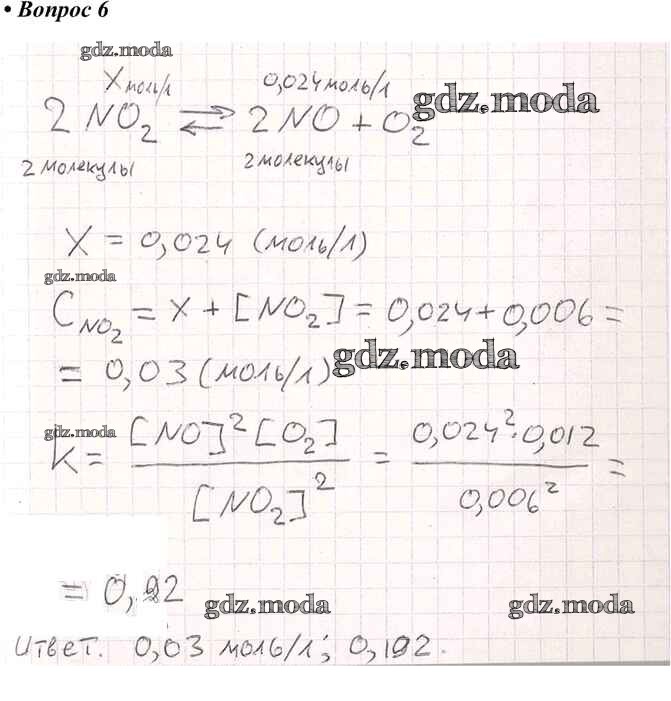 • Вопрос 6
gdz.moda
X моль/л 0,024 моль/л
gdz.moda
2NO₂ ⇄ 2NO + O₂
2 молекулы 2 молекулы
X = 0,024 (моль/л)
gdz.moda
C_NO₂ = X + [NO₂] = 0,024 + 0,006 =
= 0,03 (моль/л)
gdz.moda
gdz.moda
K = [NO]² [O₂] / [NO₂]² = 0,024² · 0,012 / 0,006² =
= 0,192
gdz.moda gdz.moda
Ответ. 0,03 моль/л; 0,192.